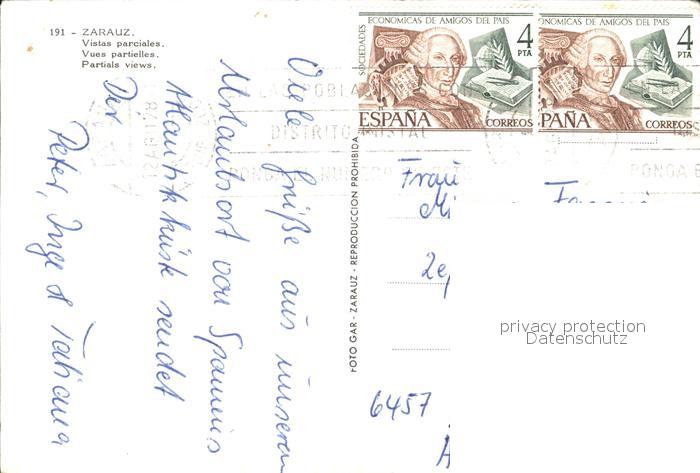 191 - ZARAUZ.
Vistas parciales.
Vues partielles.
Partials views.
Viele Grüße aus unserem
Urlaubsort von Spaniens
Atlantikküste sendet
Dir
Peter, Inge & Tatiana
FOTO GAR - ZARAUZ - REPRODUCCION PROHIBIDA
SOCIEDADES ECONOMICAS DE AMIGOS DEL PAIS
4
PTA
ESPAÑA
CORREOS
ONOMICAS DE AMIGOS DEL PAIS
4
PTA
PAÑA
CORREOS
DISTRITO POSTAL
PONGA EL NUMERO
PONGA E
Frau
Mi
6457
privacy protection
Datenschutz